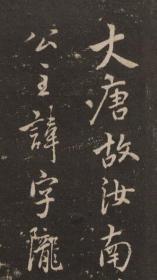 大唐故汝南
公主諱字隴